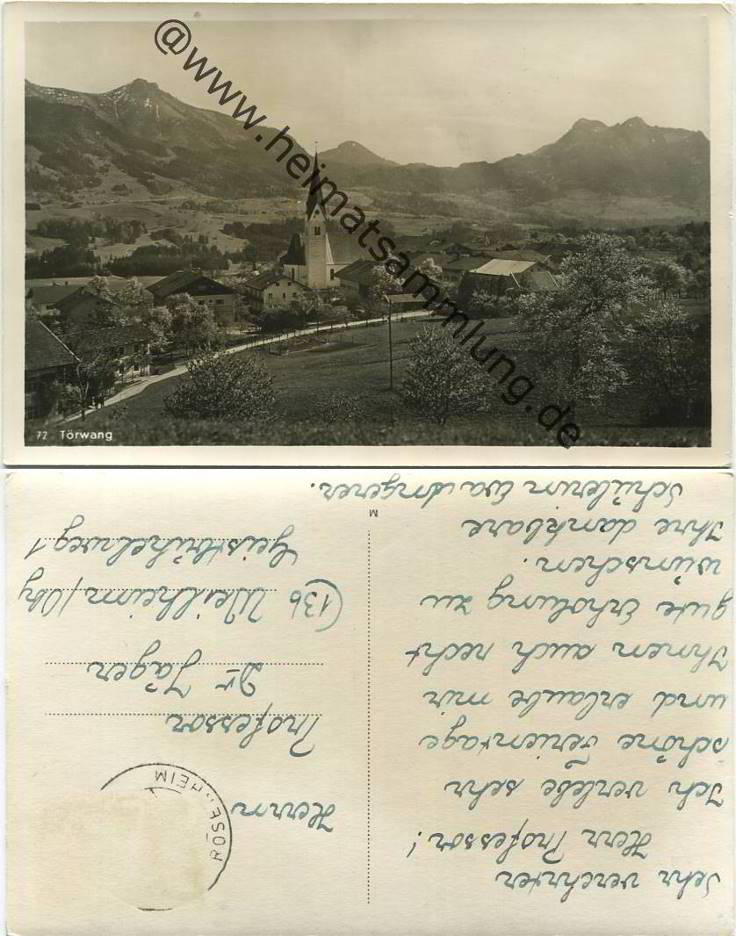 @www.heimatsammlung.de
72 Törwang
Sehr verehrter
Herr Professor!
Ich verlebe sehr
schöne Ferientage
und erlaube mir
Ihnen auch recht
gute Erholung zu
wünschen.
Ihre dankbare
Schülerin Eva Angerer.
M
ROSENHEIM
Herrn
Professor
Dr Jäger
(13b Weilheim/Oby
Geistbühelweg 1